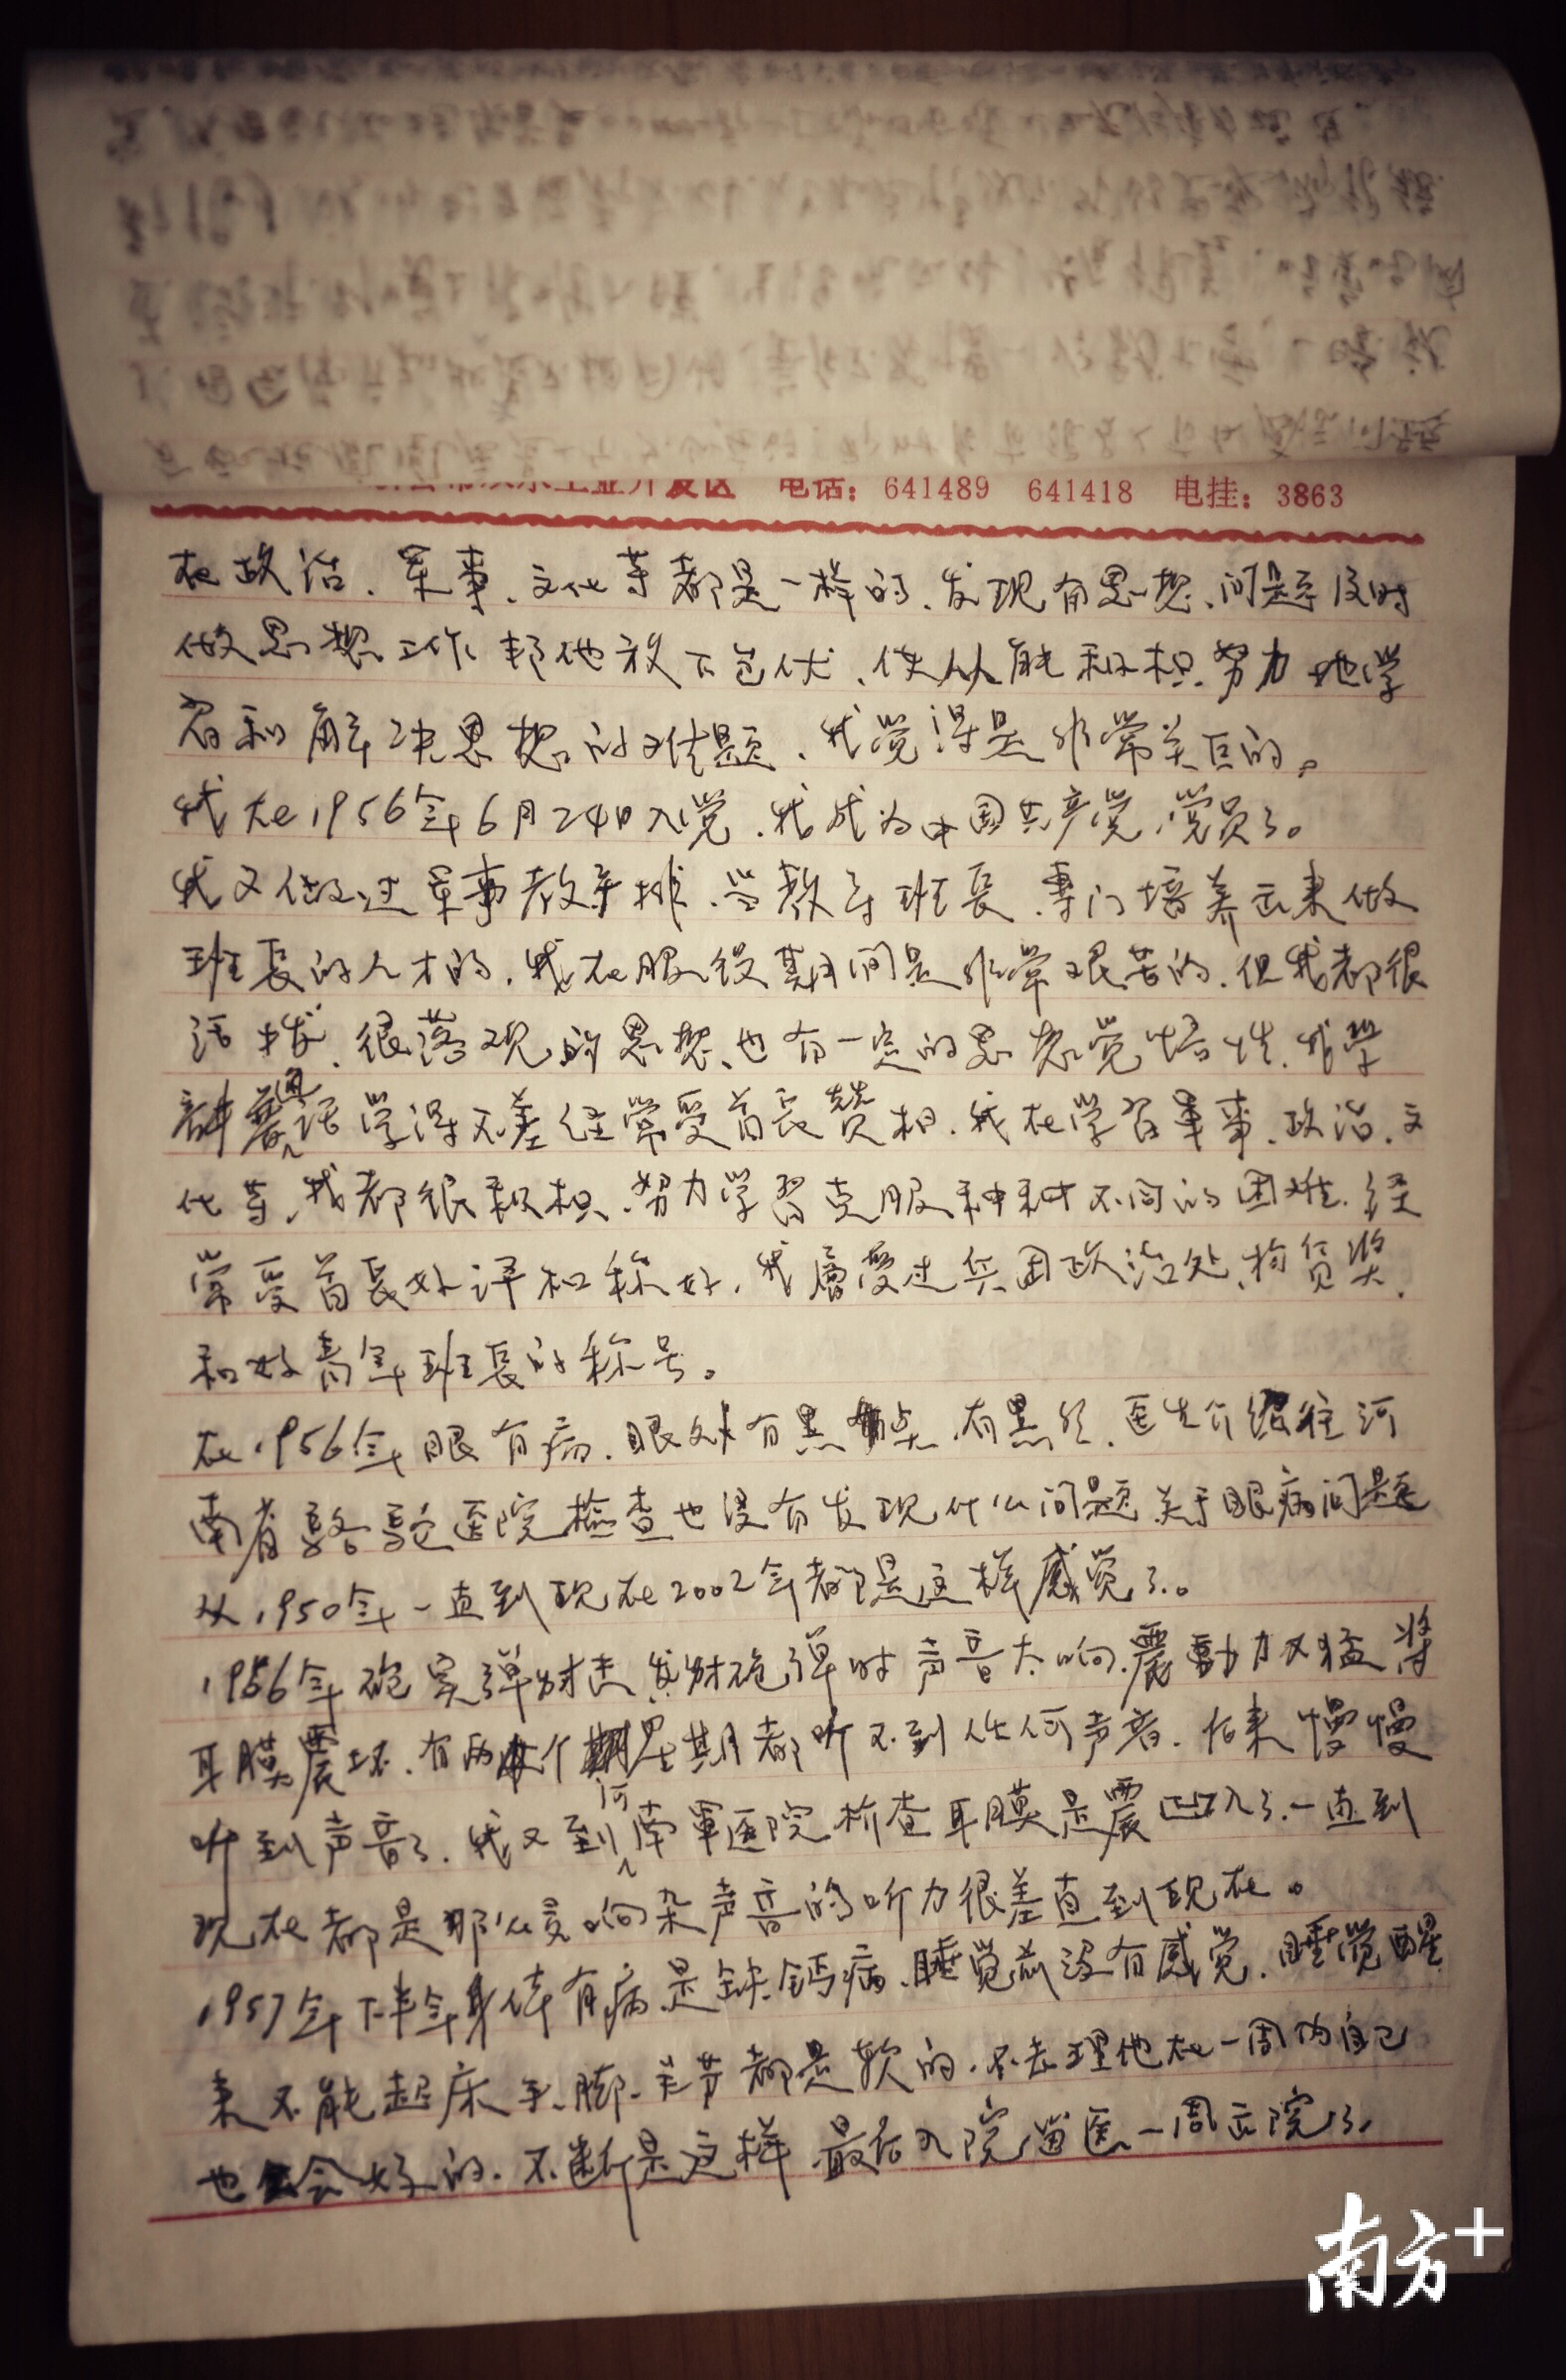 电话：641489 641418 电挂：3863
在政治、军事、文化等都是一样的、发现有思想、问题及时
做思想工作、帮他放下包伏、使从能积极努力地学
习和解决思想的难题、我觉得是非常关巨的。
我在1956年6月24日入党、我成为中国共产党党员了。
我又做过军事教导排、当教导班长、专门培养出来做
班长的人才的、我在服役期间是非常艰苦的、但我都很
活拔、很落观的思想、也有一定的思想觉悟性、我学
讲普通话学得不差经常受首长赞相、我在学习军事、政治、文
化等、我都很积极、努力学习克服种种不同的困难、经
常受首长好评和称好、我曾受过兵团政治处、物质奖、
和好青年班长的称号。
在1956年眼有病、眼处有黑点、有黑丝、医生介绍往河
南省骆驼医院检查也没有发现什么问题关于眼病问题
从1950年一直到现在2002年都是这样感觉了。
1956年砲实弹射击、发射砲弹时声音太响、震動力又猛将
耳膜震坏、有两个星期都听不到任何声音、后来慢慢
听到声音了、我又到河南軍医院检查耳膜是震凹入了、一直到
现在都是那么
响杂声音的听力很差直到现在。
1957年下半年身体有病是缺钙病、睡觉前没有感觉、睡觉醒
来不能起床手、脚、关节都是软的、不去理他在一周内自己
也会好的、不断是这样、最后入院留医一周出院了。
南方+